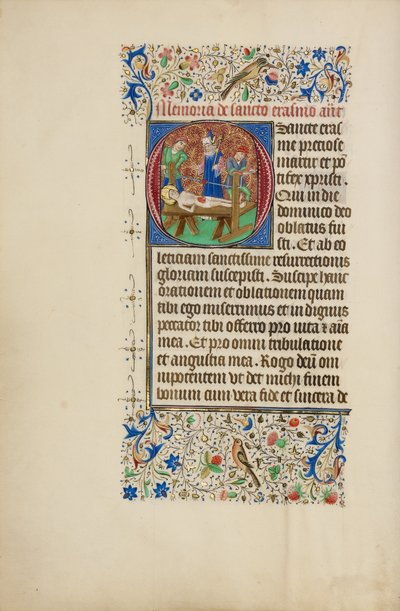 Memoria de sancto erasmo ant
Sancte eras
me preciose
martir et pō
tifex xpristi.
Qui in die
dominico deo
oblatus fui
sti. Et ab eo
leticiam sanctissime resurrectionis
gloriam suscepisti. Suscipe hanc
orationem et oblationem quam
tibi ego miserrimus et indignus
peccator tibi offerro pro vita & aīa
mea. Et pro omni tribulatione
et angustia mea. Rogo deū om
nipotentem vt det michi finem
bonum cum vera fide et sincera de